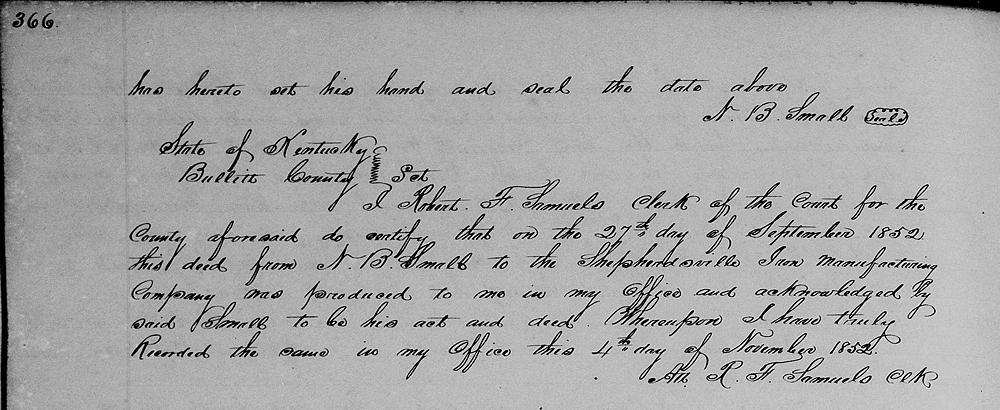 366.
has hereto set his hand and seal the date above
N. B. Small Seal
State of Kentucky
Bullitt County Sct
I Robert. F. Samuels Clerk of the Court for the
County aforesaid do certify that on the 27th day of September 1852
this deed from N. B. Small to the Shepherdsville Iron Manufacturing
Company was produced to me in my Office and acknowledged by
said Small to be his act and deed. Whereupon I have truly
Recorded the same in my Office this 4th day of November 1852.
Att. R. F. Samuels Clk